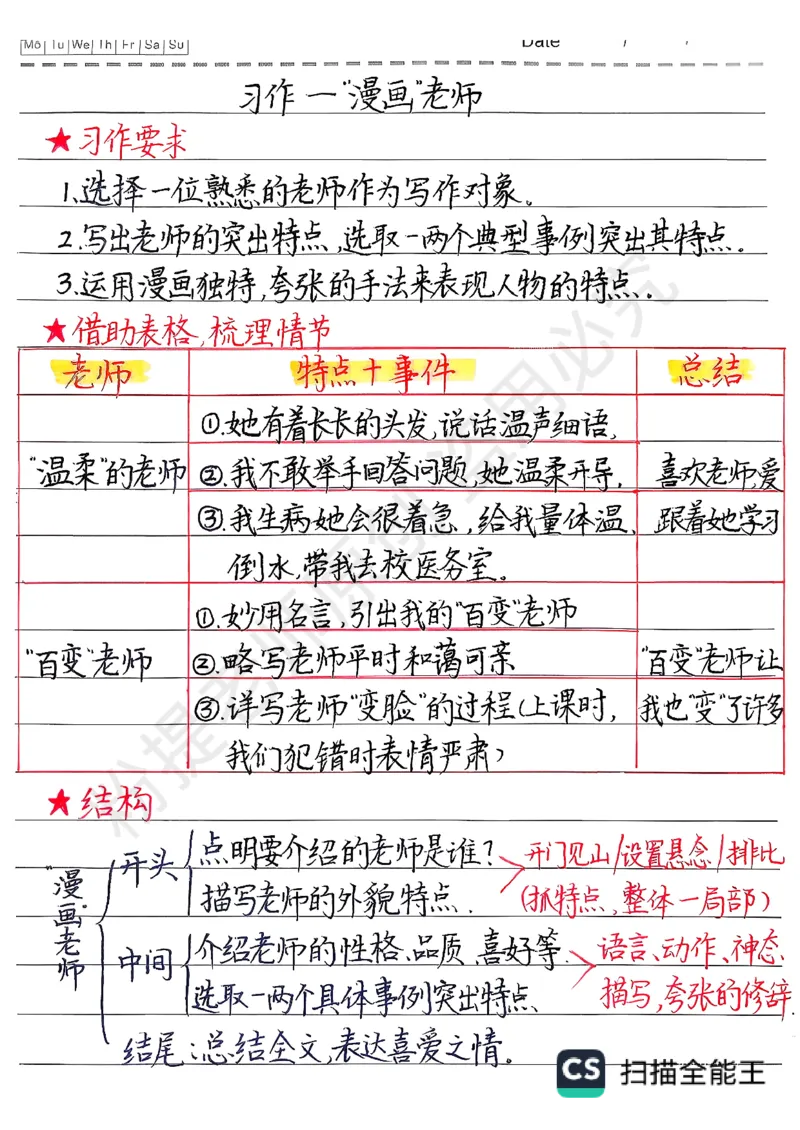 Mo Tu We Th Fr Sa Su
Date / /
习作一"漫画"老师
★习作要求
1.选择一位熟悉的老师作为写作对象。
2.写出老师的突出特点,选取一两个典型事例突出其特点。
3.运用漫画独特,夸张的手法来表现人物的特点。
★借助表格,梳理情节
老师 特点+事件 总结
①.她有着长长的头发,说话温声细语,
"温柔"的老师 ②.我不敢举手回答问题,她温柔开导, 喜欢老师,爱
③.我生病她会很着急,给我量体温, 跟着她学习
倒水,带我去校医务室。
①.妙用名言,引出我的"百变"老师
"百变"老师 ②.略写老师平时和蔼可亲 "百变"老师让
③.详写老师"变脸"的过程(上课时, 我也"变"了许多
我们犯错时表情严肃)
★结构
"漫画"老师
开头 点明要介绍的老师是谁? 开门见山/设置悬念/排比
描写老师的外貌特点. (抓特点,整体一局部)
中间 介绍老师的性格、品质、喜好等. 语言、动作、神态
选取一两个具体事例突出特点、 描写,夸张的修辞.
结尾:总结全文,表达喜爱之情。
CS 扫描全能王